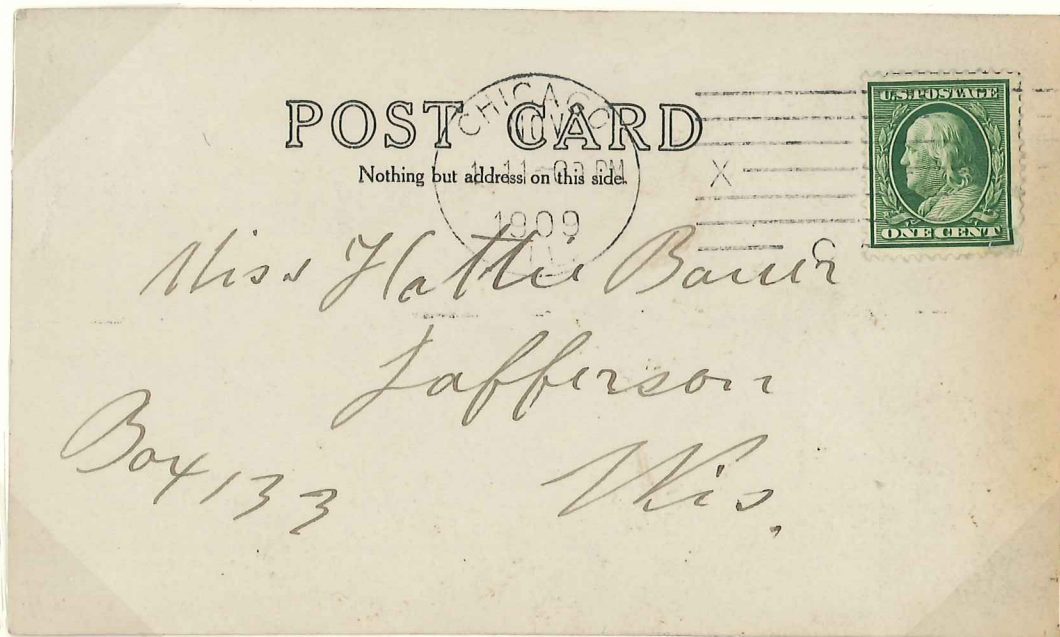 POST CARD
Nothing but address on this side.
CHICAGO
NOV
1 11-00 PM
1909
ILL
X
C
U.S. POSTAGE
ONE CENT
Miss Hattie Bauer
Jafferson
Box 133
Wis.